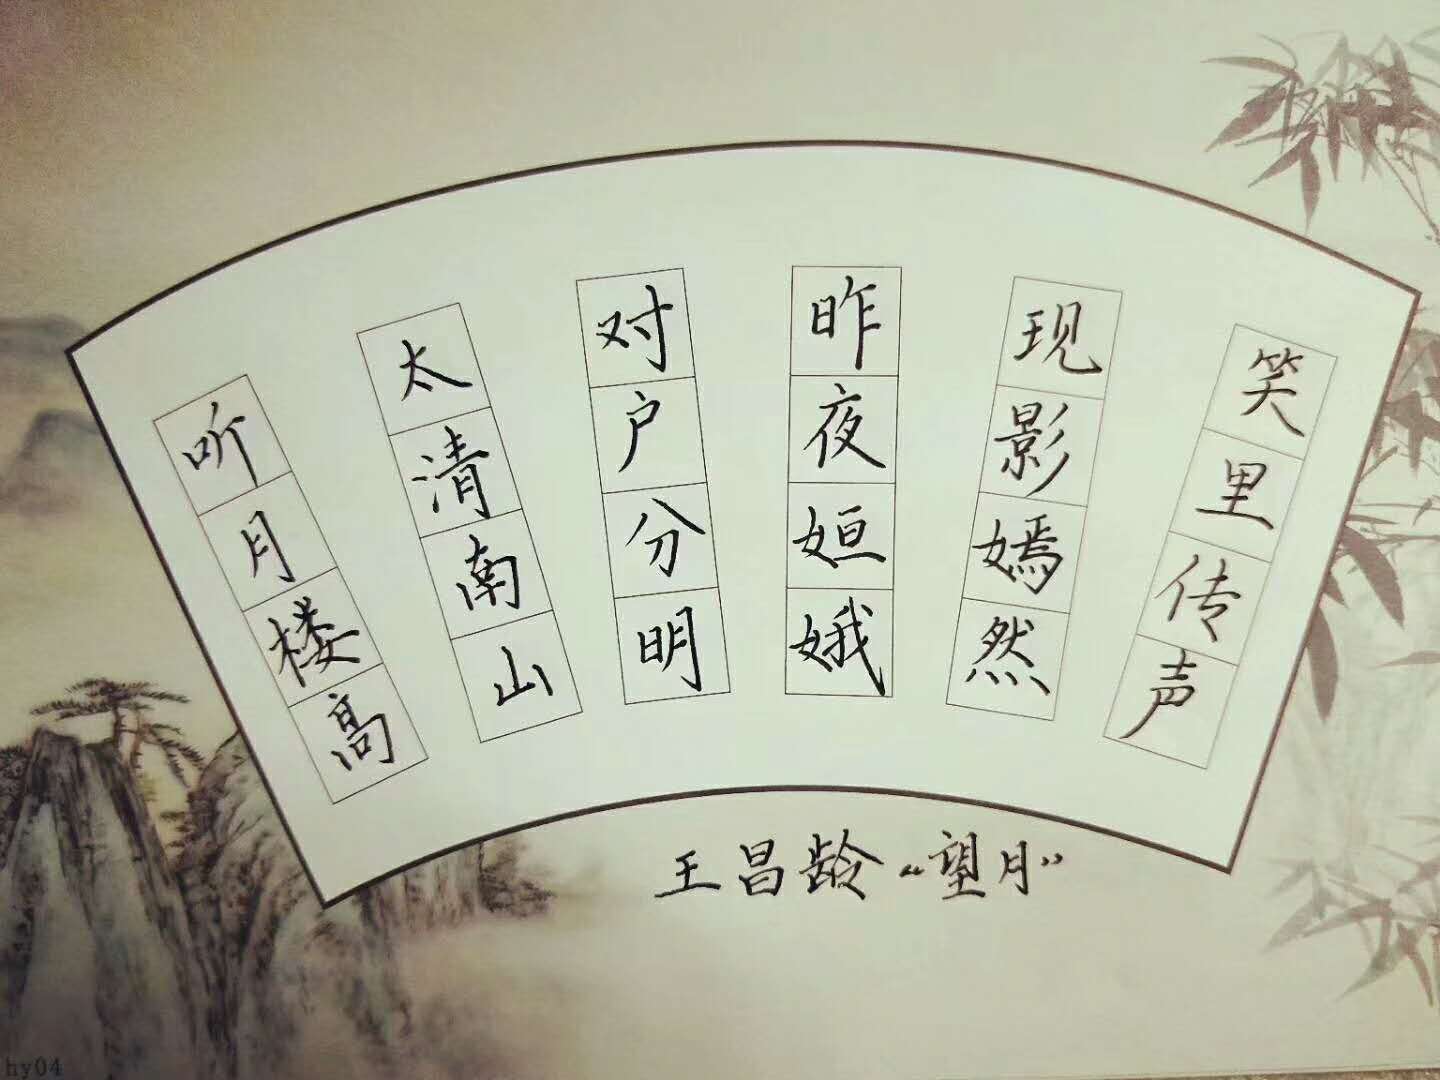 听月楼高
太清南山
对户分明
昨夜姮娥
现影嫣然
笑里传声
王昌龄“望月”
hy04